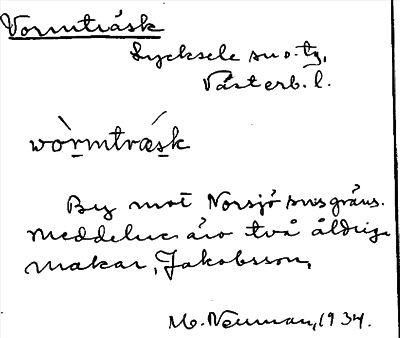 Vormträsk
Lycksele sn o. tg,
Västerb. l.
wòrmtræsk
By mot Norsjö snsgräns.
Meddelare äro två åldriga
makar, Jakobsson,
M. Neuman, 1934.